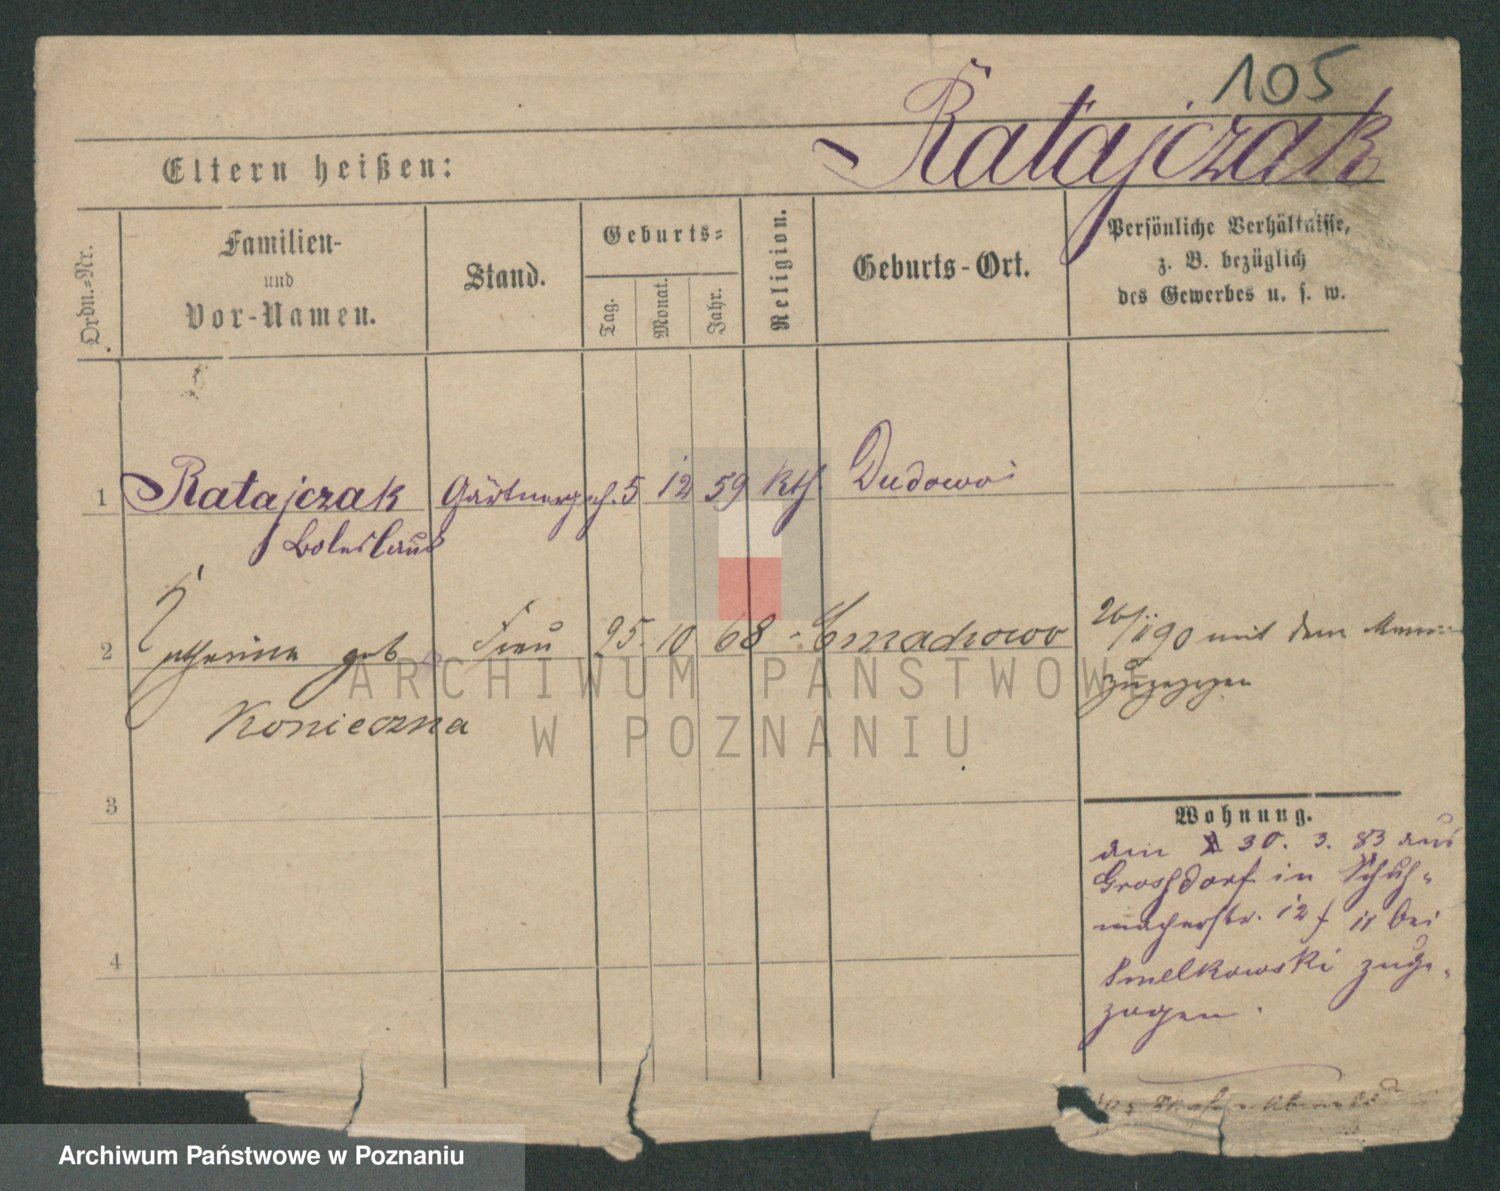 105
Ratajczak
Eltern heißen:
Ordn.-Nr.
Familien-
und
Vor-Namen.
Stand.
Geburts-
Tag.
Monat.
Jahr.
Religion.
Geburts-Ort.
Persönliche Verhältnisse,
z. B. bezüglich
des Gewerbes u. s. w.
1 Ratajczak Gärtnergeh. 5 12 59 kth Dudowo
Boleslaus
2 Catharina geb Frau 25. 10 68 - Emachowo
Konieczna
26/ii 90 mit dem Manne
zugezogen
ARCHIWUM PAŃSTWOWE
W POZNANIU
3
4
Wohnung.
den 30. 3. 83 aus
Groszdorf in Schuh-
macherstr. 12 f ii bei
Smelkowski zuge-
zogen.
Archiwum Państwowe w Poznaniu